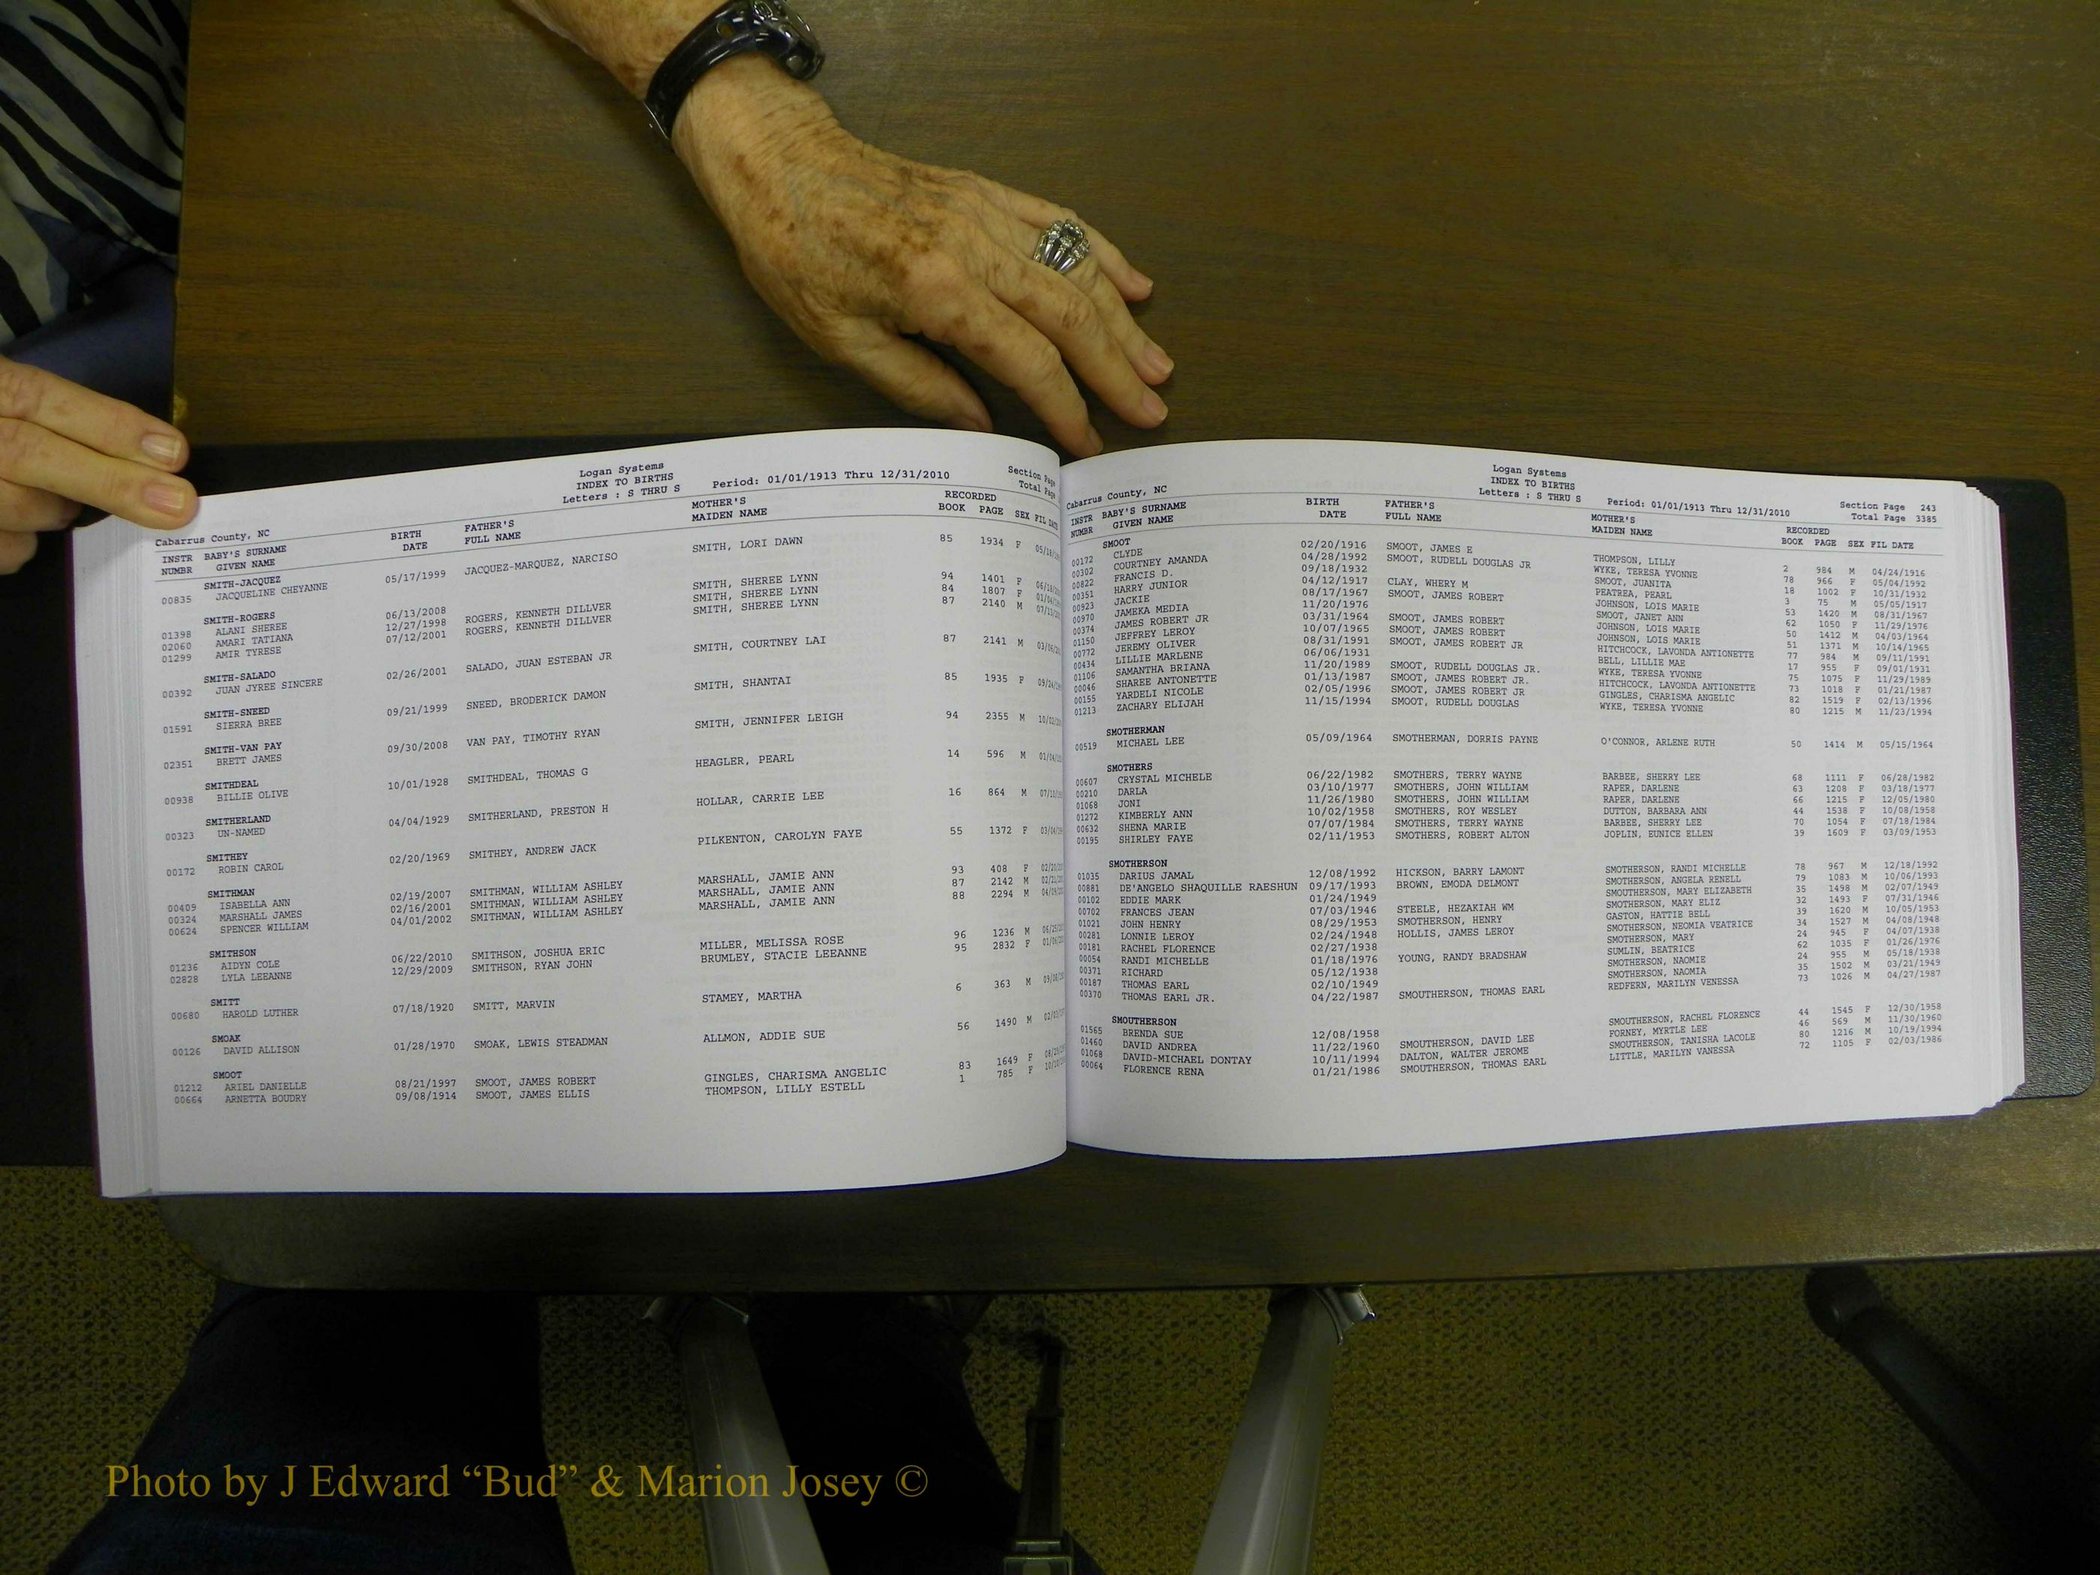 Logan Systems
INDEX TO BIRTHS
Letters : S THRU S Period: 01/01/1913 Thru 12/31/2010 Section Page
Cabarrus County, NC Total Page
INSTR BABY'S SURNAME BIRTH FATHER'S MOTHER'S RECORDED
NUMBR GIVEN NAME DATE FULL NAME MAIDEN NAME BOOK PAGE SEX FIL DATE
SMITH-JACQUEZ
00835 JACQUELINE CHEYANNE 05/17/1999 JACQUEZ-MARQUEZ, NARCISO SMITH, LORI DAWN 85 1934 F
SMITH-ROGERS
01398 ALANI SHEREE 06/13/2008 SMITH, SHEREE LYNN 94 1401 F
02060 AMARI TATIANA 12/27/1998 ROGERS, KENNETH DILLVER SMITH, SHEREE LYNN 84 1807 F
01299 AMIR TYRESE 07/12/2001 ROGERS, KENNETH DILLVER SMITH, SHEREE LYNN 87 2140 M
SMITH-SALADO
00392 JUAN JYREE SINCERE 02/26/2001 SALADO, JUAN ESTEBAN JR SMITH, COURTNEY LAI 87 2141 M
SMITH-SNEED
01591 SIERRA BREE 09/21/1999 SNEED, BRODERICK DAMON SMITH, SHANTAI 85 1935 F
SMITH-VAN PAY
02351 BRETT JAMES 09/30/2008 VAN PAY, TIMOTHY RYAN SMITH, JENNIFER LEIGH 94 2355 M
SMITHDEAL
00938 BILLIE OLIVE 10/01/1928 SMITHDEAL, THOMAS G HEAGLER, PEARL 14 596 M
SMITHERLAND
00323 UN-NAMED 04/04/1929 SMITHERLAND, PRESTON H HOLLAR, CARRIE LEE 16 864 M
SMITHEY
00172 ROBIN CAROL 02/20/1969 SMITHEY, ANDREW JACK PILKENTON, CAROLYN FAYE 55 1372 F
SMITHMAN
00409 ISABELLA ANN 02/19/2007 SMITHMAN, WILLIAM ASHLEY MARSHALL, JAMIE ANN 93 408 F
00324 MARSHALL JAMES 02/16/2001 SMITHMAN, WILLIAM ASHLEY MARSHALL, JAMIE ANN 87 2142 M
00624 SPENCER WILLIAM 04/01/2002 SMITHMAN, WILLIAM ASHLEY MARSHALL, JAMIE ANN 88 2294 M
SMITHSON
01236 AIDYN COLE 06/22/2010 SMITHSON, JOSHUA ERIC MILLER, MELISSA ROSE 96 1236 M
02828 LYLA LEEANNE 12/29/2009 SMITHSON, RYAN JOHN BRUMLEY, STACIE LEEANNE 95 2832 F
SMITT
00680 HAROLD LUTHER 07/18/1920 SMITT, MARVIN STAMEY, MARTHA 6 363 M
SMOAK
00126 DAVID ALLISON 01/28/1970 SMOAK, LEWIS STEADMAN ALLMON, ADDIE SUE 56 1490 M
SMOOT
01212 ARIEL DANIELLE 08/21/1997 SMOOT, JAMES ROBERT GINGLES, CHARISMA ANGELIC 83 1649 F
00664 ARNETTA BOUDRY 09/08/1914 SMOOT, JAMES ELLIS THOMPSON, LILLY ESTELL 1 785 F
Logan Systems
INDEX TO BIRTHS
Cabarrus County, NC Letters : S THRU S Period: 01/01/1913 Thru 12/31/2010 Section Page 243
Total Page 3385
INSTR BABY'S SURNAME BIRTH FATHER'S MOTHER'S RECORDED
NUMBR GIVEN NAME DATE FULL NAME MAIDEN NAME BOOK PAGE SEX FIL DATE
SMOOT
00172 CLYDE 02/20/1916 SMOOT, JAMES E THOMPSON, LILLY 2 984 M 04/24/1916
00302 COURTNEY AMANDA 04/28/1992 SMOOT, RUDELL DOUGLAS JR WYKE, TERESA YVONNE 78 966 F 05/04/1992
00822 FRANCIS D. 09/18/1932 SMOOT, JUANITA 18 1002 F 10/31/1932
00351 HARRY JUNIOR 04/12/1917 CLAY, WHERY M PEATREA, PEARL 3 75 M 05/05/1917
00923 JACKIE 08/17/1967 SMOOT, JAMES ROBERT JOHNSON, LOIS MARIE 53 1420 M 08/31/1967
00970 JAMEKA MEDIA 11/20/1976 SMOOT, JANET ANN 62 1050 F 11/29/1976
00374 JAMES ROBERT JR 03/31/1964 SMOOT, JAMES ROBERT JOHNSON, LOIS MARIE 50 1412 M 04/03/1964
01150 JEFFREY LEROY 10/07/1965 SMOOT, JAMES ROBERT JOHNSON, LOIS MARIE 51 1371 M 10/14/1965
00772 JEREMY OLIVER 08/31/1991 SMOOT, JAMES ROBERT JR HITCHCOCK, LAVONDA ANTIONETTE 77 984 M 09/11/1991
00434 LILLIE MARLENE 06/06/1931 BELL, LILLIE MAE 17 955 F 09/01/1931
01106 SAMANTHA BRIANA 11/20/1989 SMOOT, RUDELL DOUGLAS JR. WYKE, TERESA YVONNE 75 1075 F 11/29/1989
00046 SHAREE ANTONETTE 01/13/1987 SMOOT, JAMES ROBERT JR. HITCHCOCK, LAVONDA ANTIONETTE 73 1018 F 01/21/1987
00155 YARDELI NICOLE 02/05/1996 SMOOT, JAMES ROBERT JR GINGLES, CHARISMA ANGELIC 82 1519 F 02/13/1996
01213 ZACHARY ELIJAH 11/15/1994 SMOOT, RUDELL DOUGLAS WYKE, TERESA YVONNE 80 1215 M 11/23/1994
SMOTHERMAN
00519 MICHAEL LEE 05/09/1964 SMOTHERMAN, DORRIS PAYNE O'CONNOR, ARLENE RUTH 50 1414 M 05/15/1964
SMOTHERS
00607 CRYSTAL MICHELE 06/22/1982 SMOTHERS, TERRY WAYNE BARBEE, SHERRY LEE 68 1111 F 06/28/1982
00210 DARLA 03/10/1977 SMOTHERS, JOHN WILLIAM RAPER, DARLENE 63 1208 F 03/18/1977
01068 JONI 11/26/1980 SMOTHERS, JOHN WILLIAM RAPER, DARLENE 66 1215 F 12/05/1980
01272 KIMBERLY ANN 10/02/1958 SMOTHERS, ROY WESLEY DUTTON, BARBARA ANN 44 1538 F 10/08/1958
00632 SHENA MARIE 07/07/1984 SMOTHERS, TERRY WAYNE BARBEE, SHERRY LEE 70 1054 F 07/18/1984
00195 SHIRLEY FAYE 02/11/1953 SMOTHERS, ROBERT ALTON JOPLIN, EUNICE ELLEN 39 1609 F 03/09/1953
SMOTHERSON
01035 DARIUS JAMAL 12/08/1992 HICKSON, BARRY LAMONT SMOTHERSON, RANDI MICHELLE 78 967 M 12/18/1992
00881 DE'ANGELO SHAQUILLE RAESHUN 09/17/1993 BROWN, EMODA DELMONT SMOTHERSON, ANGELA RENELL 79 1083 M 10/06/1993
00102 EDDIE MARK 01/24/1949 SMOUTHERSON, MARY ELIZABETH 35 1498 M 02/07/1949
00702 FRANCES JEAN 07/03/1946 STEELE, HEZAKIAH WM SMOTHERSON, MARY ELIZ 32 1493 F 07/31/1946
01021 JOHN HENRY 08/29/1953 SMOTHERSON, HENRY GASTON, HATTIE BELL 39 1620 M 10/05/1953
00281 LONNIE LEROY 02/24/1948 HOLLIS, JAMES LEROY SMOTHERSON, NEOMIA VEATRICE 34 1527 M 04/08/1948
00181 RACHEL FLORENCE 02/27/1938 SMOTHERSON, MARY 24 945 F 04/07/1938
00054 RANDI MICHELLE 01/18/1976 YOUNG, RANDY BRADSHAW SUMLIN, BEATRICE 62 1035 F 01/26/1976
00371 RICHARD 05/12/1938 SMOTHERSON, NAOMIE 24 955 M 05/18/1938
00187 THOMAS EARL 02/10/1949 SMOTHERSON, NAOMIA 35 1502 M 03/21/1949
00370 THOMAS EARL JR. 04/22/1987 SMOUTHERSON, THOMAS EARL REDFERN, MARILYN VENESSA 73 1026 M 04/27/1987
SMOUTHERSON
01565 BRENDA SUE 12/08/1958 SMOUTHERSON, RACHEL FLORENCE 44 1545 F 12/30/1958
01460 DAVID ANDREA 11/22/1960 SMOUTHERSON, DAVID LEE FORNEY, MYRTLE LEE 46 569 M 11/30/1960
01068 DAVID-MICHAEL DONTAY 10/11/1994 DALTON, WALTER JEROME SMOUTHERSON, TANISHA LACOLE 80 1216 M 10/19/1994
00064 FLORENCE RENA 01/21/1986 SMOUTHERSON, THOMAS EARL LITTLE, MARILYN VANESSA 72 1105 F 02/03/1986
Photo by J Edward “Bud” & Marion Josey ©